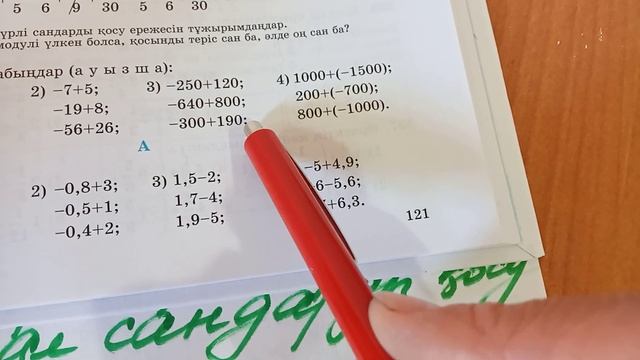 5 6 9 30 5 6 30
сандарды қосу ережесін тұжырымдаңдар.
модулі үлкен болса, қосынды теріс сан ба, әлде оң сан ба?
(а у ы з ш а):
2) −7+5; 3) −250+120; 4) 1000+(−1500);
−19+8; −640+800; 200+(−700);
−56+26; −300+190; 800+(−1000).
А
2) −0,8+3; 3) 1,5−2; −5+4,9;
−0,5+1; 1,7−4; 6−5,6;
−0,4+2; 1,9−5; +6,3.
121
сандарды қосу